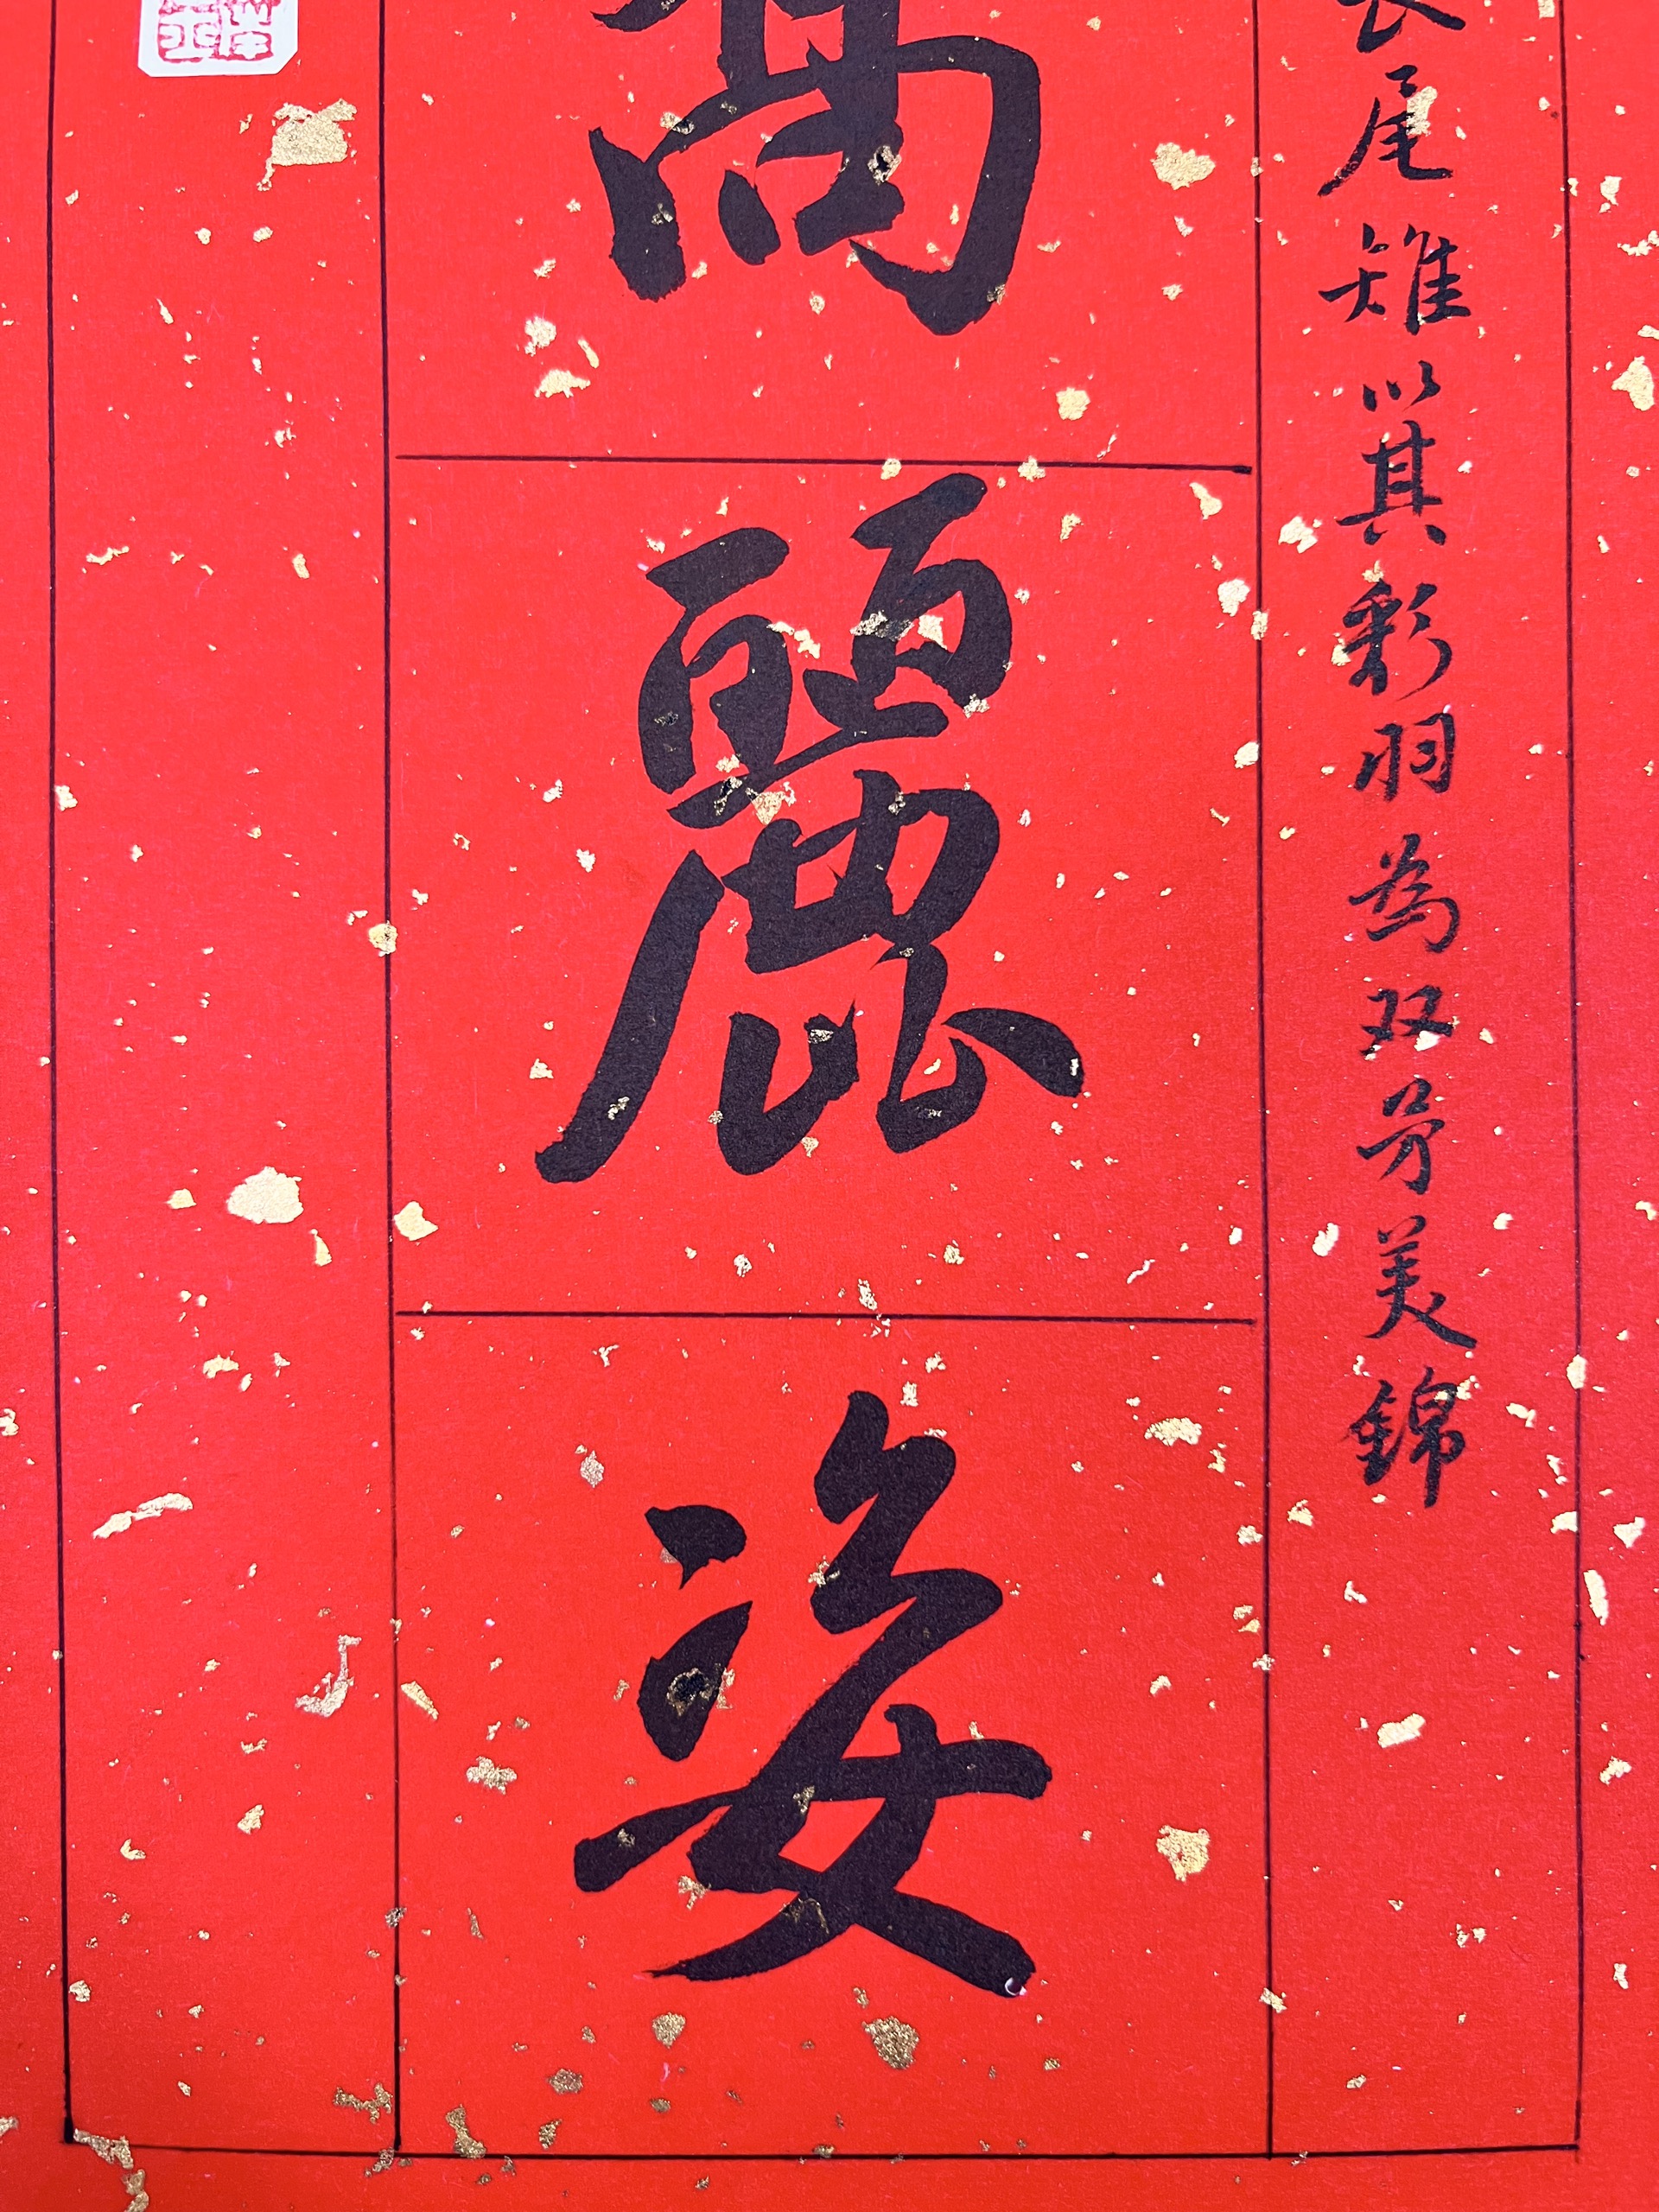 尾雉以其彩羽為双美錦
麗姿